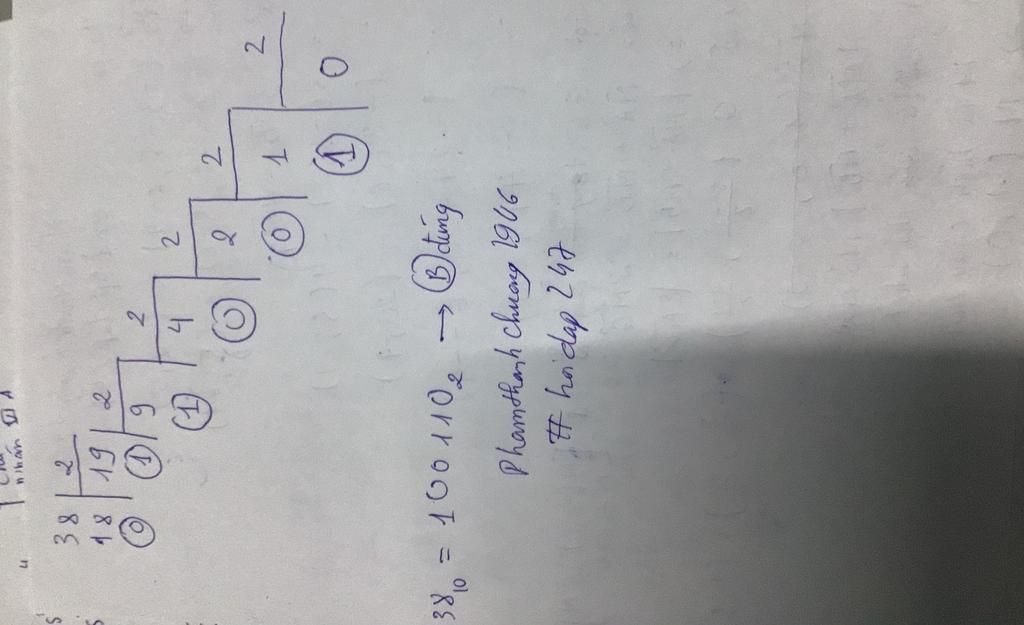 38 2
18 19 2
0 1 9 2
1 4 2
0 2 2
0 1 2
1 0
38₁₀ = 100110₂ → B đúng
Phamthanhchuong1946
# hoidap247